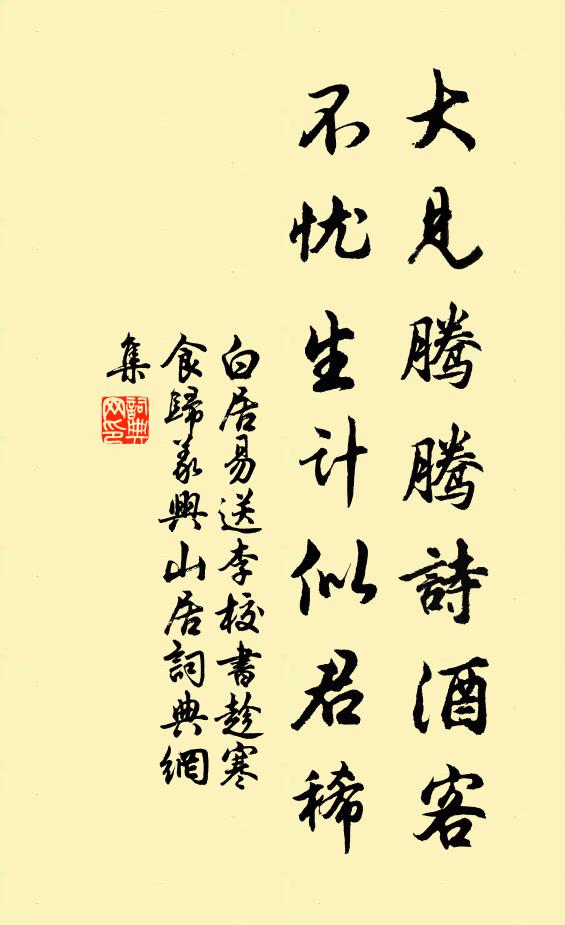 大見騰騰詩酒客
不憂生計似君稀
白居易送李校書趁寒
食歸義興山居詞典網
集
詞典
网印